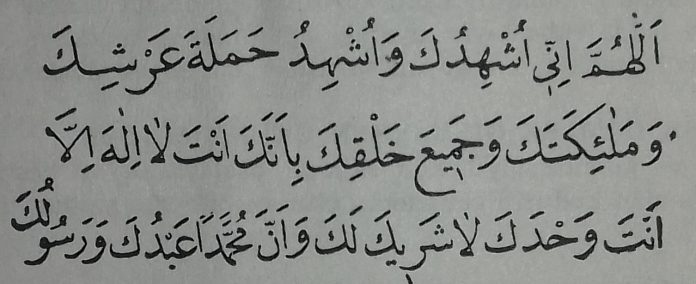 اَللّٰهُمَّ اِنِّى اُشْهِدُكَ وَاُشْهِدُ حَمَلَةَ عَرْشِكَ
وَمَلٰئِكَتَكَ وَجَمِيعَ خَلْقِكَ بِاَنَّكَ اَنْتَ لَا اِلٰهَ اِلَّا
اَنْتَ وَحْدَكَ لَا شَرِيكَ لَكَ وَاَنَّ مُحَمَّدًا عَبْدُكَ وَرَسُولُكَ